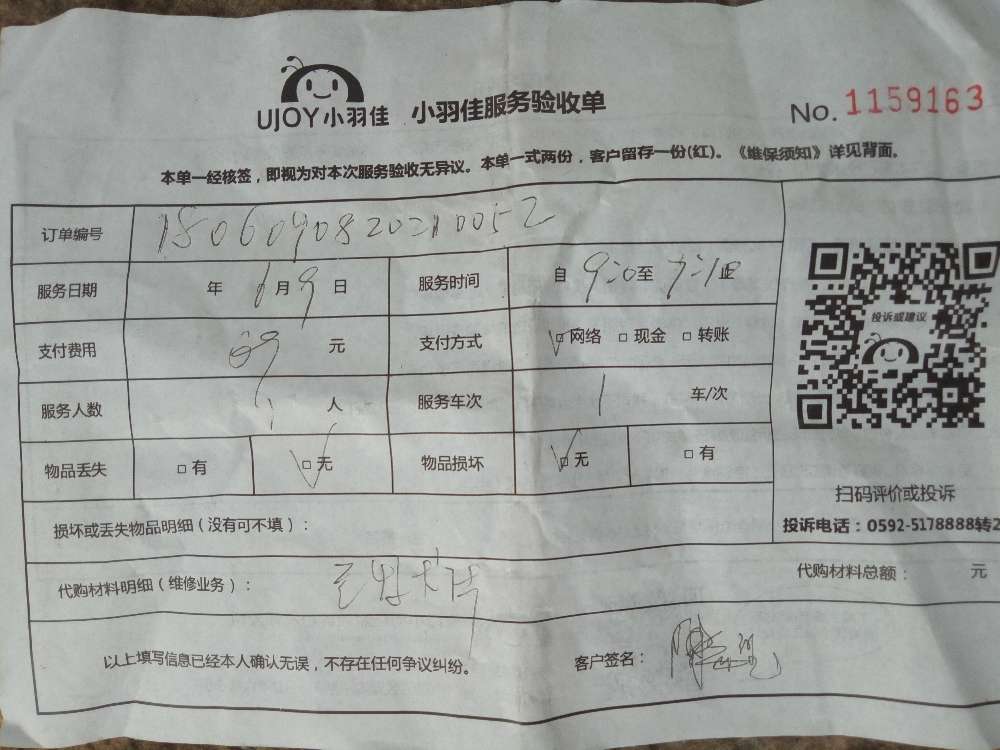 UJOY小羽佳 小羽佳服务验收单 No.1159163
本单一经核签，即视为对本次服务验收无异议。本单一式两份，客户留存一份(红)。《维保须知》详见背面。
订单编号 180609082021 0052
服务日期 年 6月9日 服务时间 自 9:30至 止
支付费用 元 支付方式 网络 □现金 □转账
服务人数 1 人 服务车次 1 车/次
物品丢失 □有 □无 物品损坏 □无 □有
投诉或建议
扫码评价或投诉
投诉电话：0592-5178888转2
损坏或丢失物品明细（没有可不填）：
代购材料明细（维修业务）： 代购材料总额： 元
以上填写信息已经本人确认无误，不存在任何争议纠纷。 客户签名：